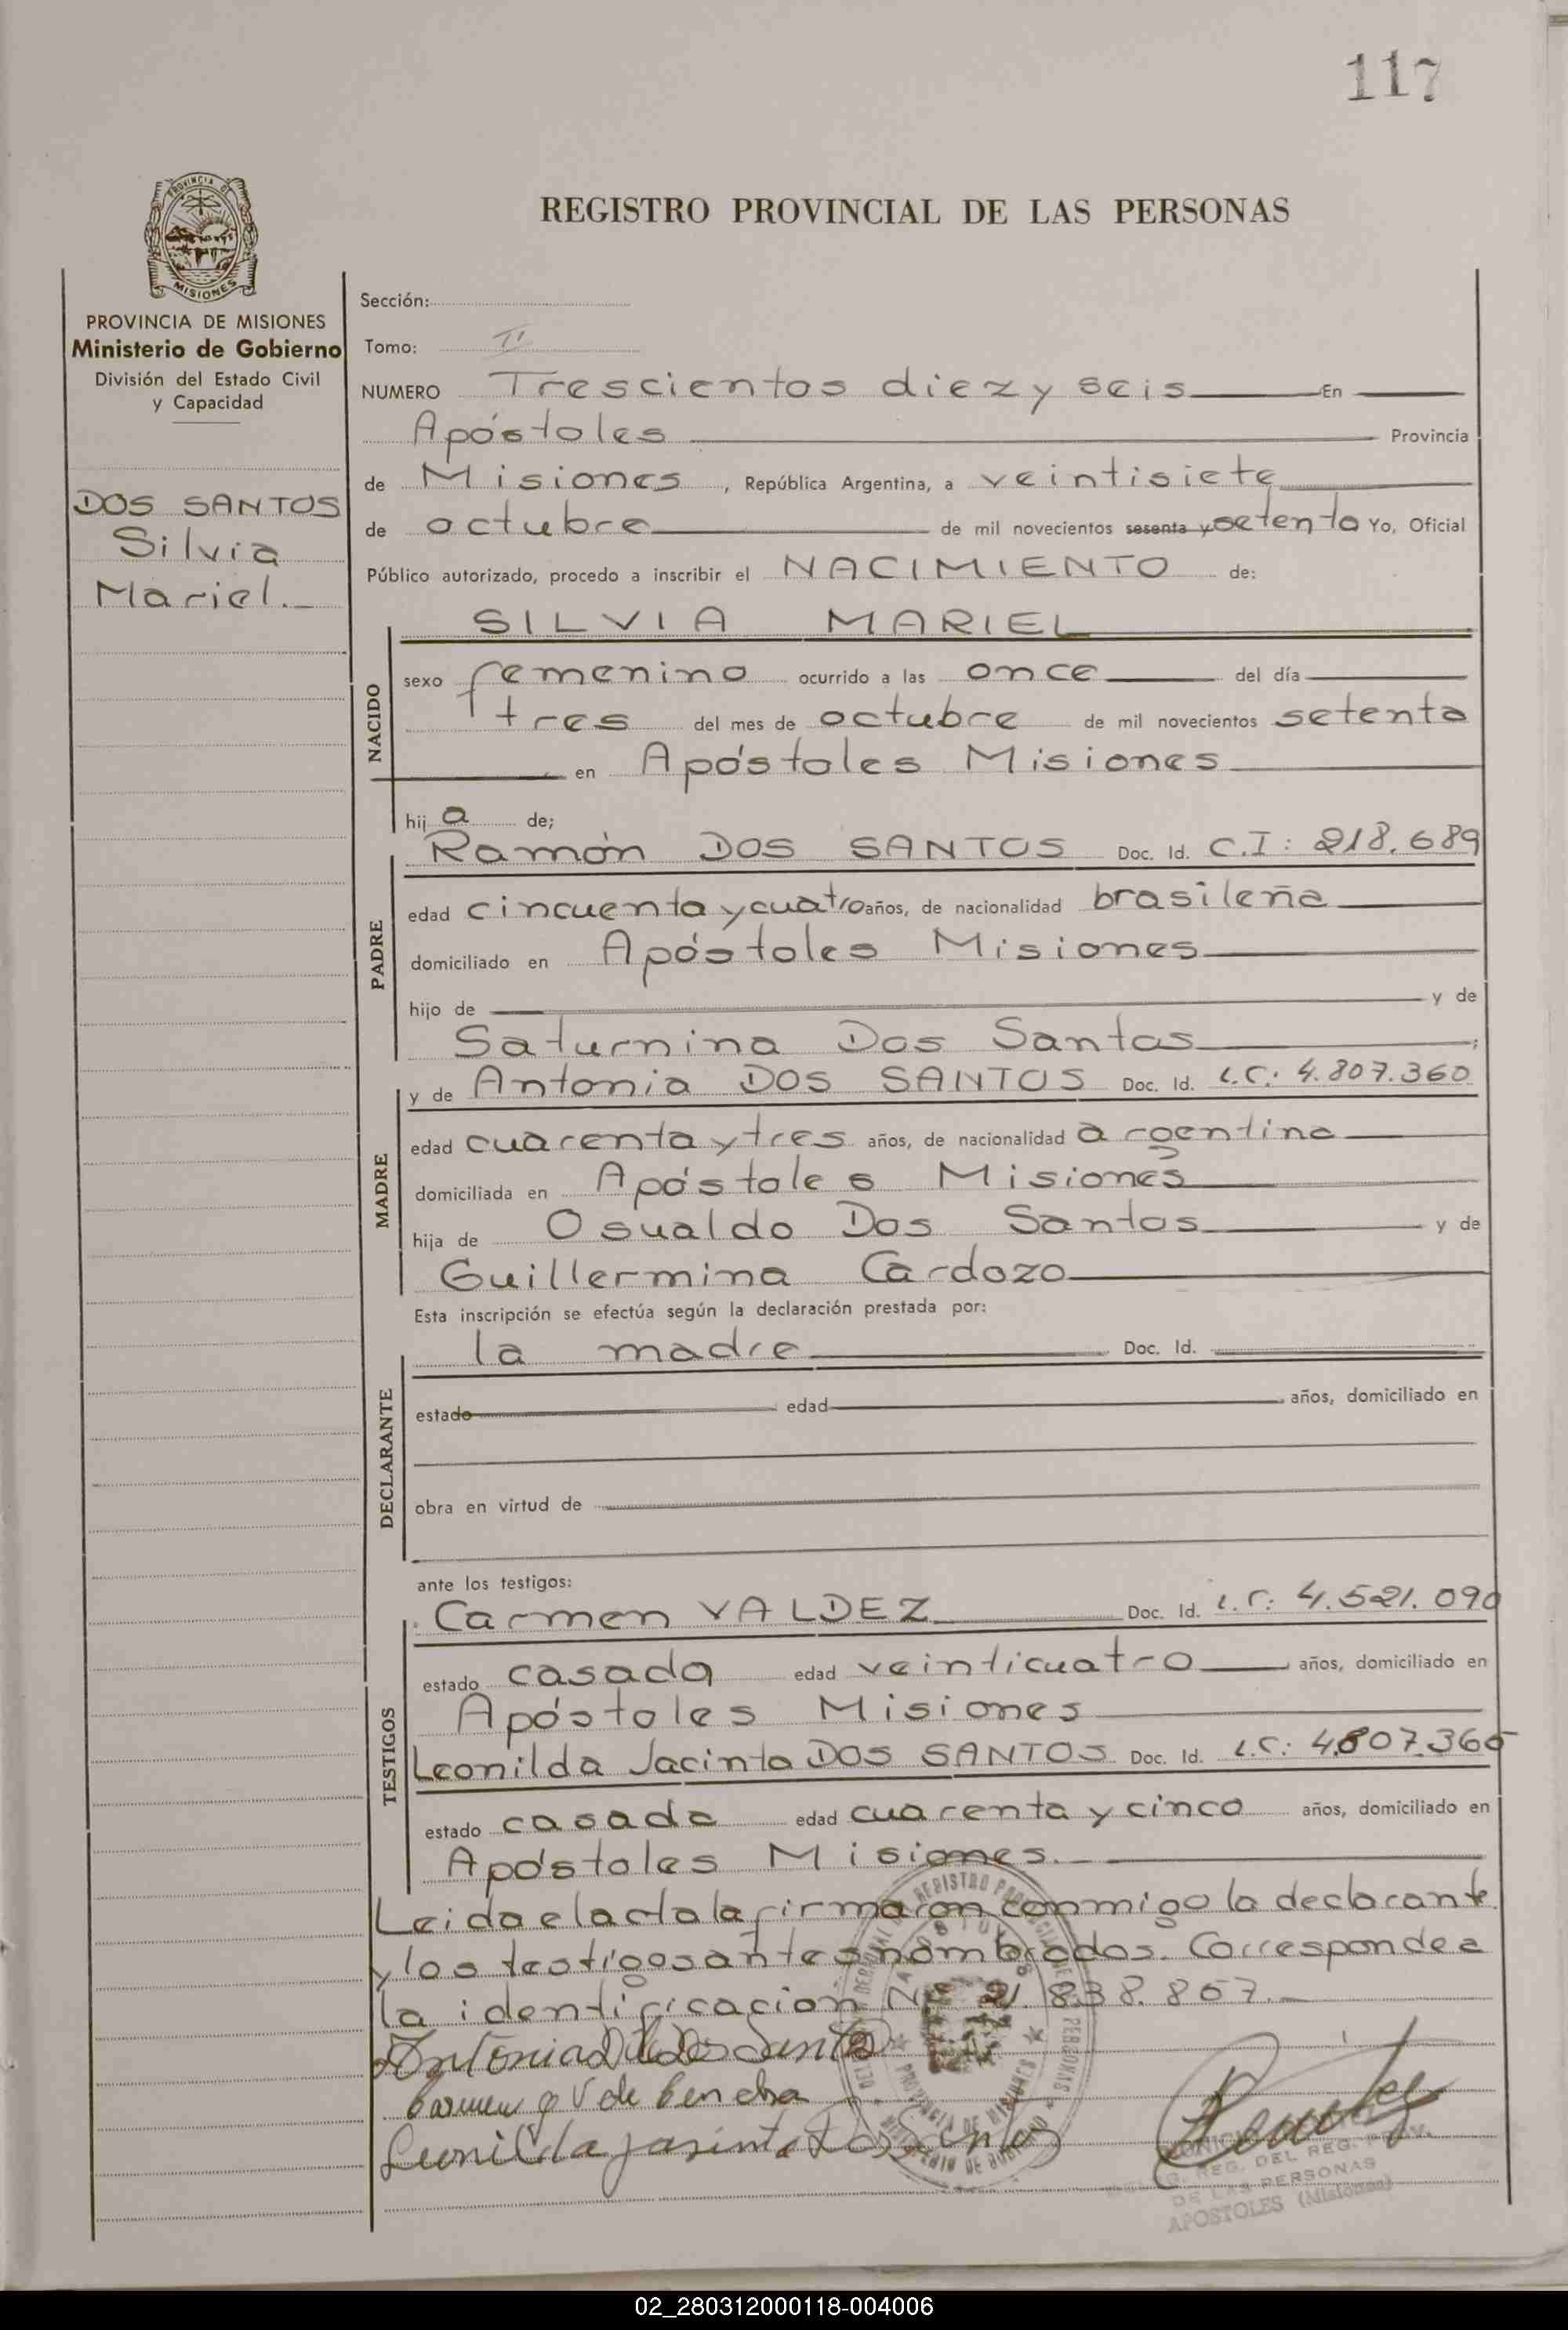 117
PROVINCIA DE
MISIONES
REGISTRO PROVINCIAL DE LAS PERSONAS
PROVINCIA DE MISIONES
Ministerio de Gobierno
División del Estado Civil
y Capacidad
DOS SANTOS
Silvia
Mariel.
Sección:
Tomo: II
NUMERO Trescientos diez y seis En
Apóstoles Provincia
de Misiones, República Argentina, a veintisiete
de octubre de mil novecientos sesenta y setenta Yo, Oficial
Público autorizado, procedo a inscribir el NACIMIENTO de:
NACIDO
SILVIA MARIEL
sexo femenino ocurrido a las once del día
tres del mes de octubre de mil novecientos setenta
en Apóstoles Misiones
hija de;
PADRE
Ramón DOS SANTOS Doc. Id. C.I: 218.689
edad cincuenta y cuatro años, de nacionalidad brasileña
domiciliado en Apóstoles Misiones
hijo de y de
Saturnina Dos Santos;
MADRE
y de Antonia DOS SANTOS Doc. Id. L.C: 4.807.360
edad cuarenta y tres años, de nacionalidad argentina
domiciliada en Apóstoles Misiones
hija de Osualdo Dos Santos y de
Guillermina Cardozo
Esta inscripción se efectúa según la declaración prestada por:
DECLARANTE
la madre Doc. Id.
estado edad años, domiciliado en
obra en virtud de
ante los testigos:
TESTIGOS
Carmen VALDEZ Doc. Id. L.C: 4.521.090
estado casada edad veinticuatro años, domiciliado en
Apóstoles Misiones
Leonilda Jacinta DOS SANTOS Doc. Id. L.C: 4.807.366
estado casada edad cuarenta y cinco años, domiciliado en
Apóstoles Misiones.
Leida el acta la firmaron conmigo la declarante
y los testigos antes nombrados. Corresponde a
la identificacion Nº 21.838.857.
Antonia D de Dos Santos
Carmen g V de
Leonilda jasinta Dos Santos
REG. DEL REG. PROV.
DE LAS PERSONAS
APOSTOLES (Misiones)
02_280312000118-004006